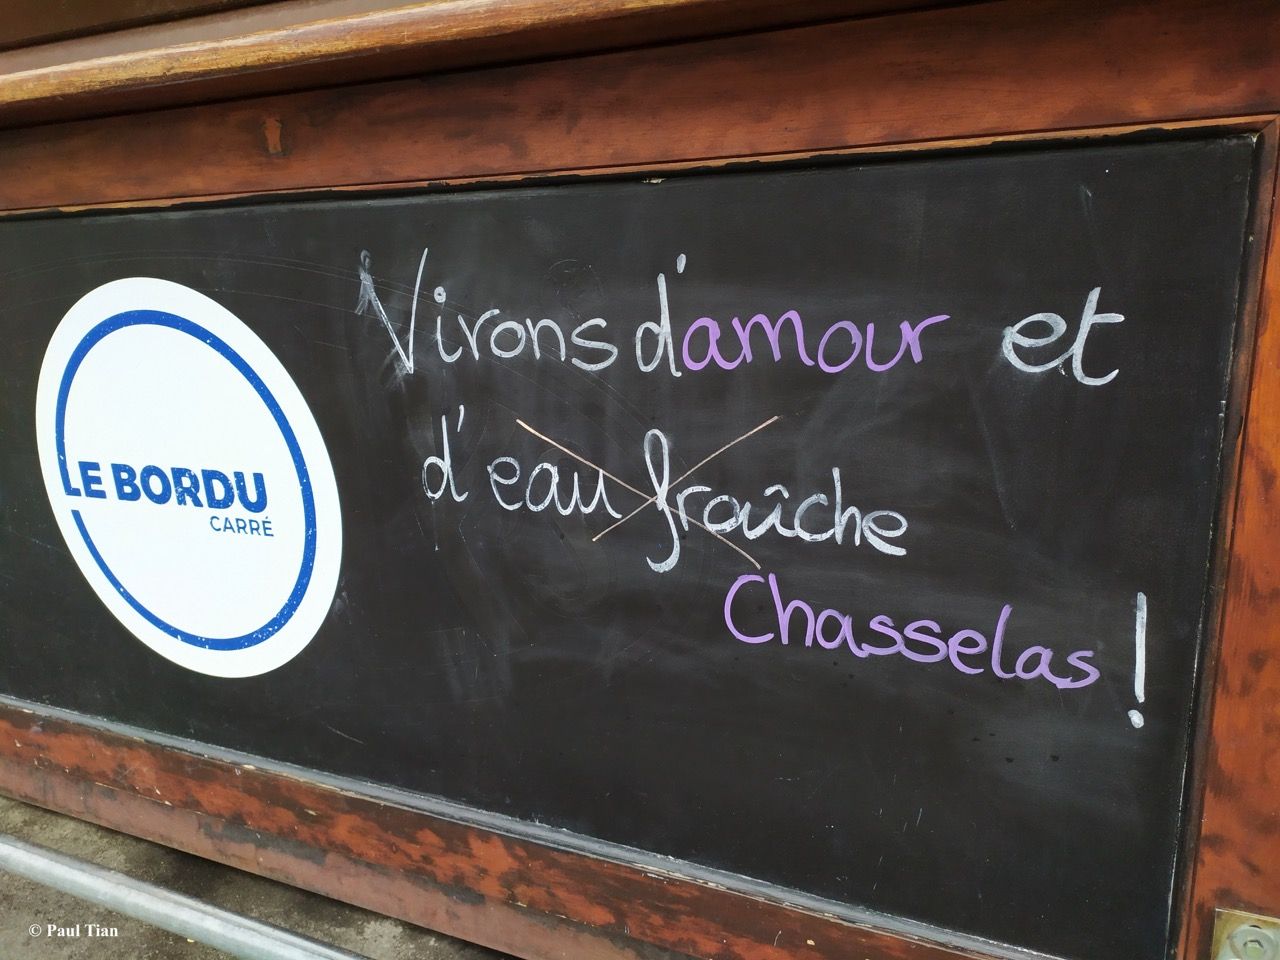 LE BORDU
CARRÉ
Virons d'amour et
d'eau fraîche
Chasselas !
© Paul Tian